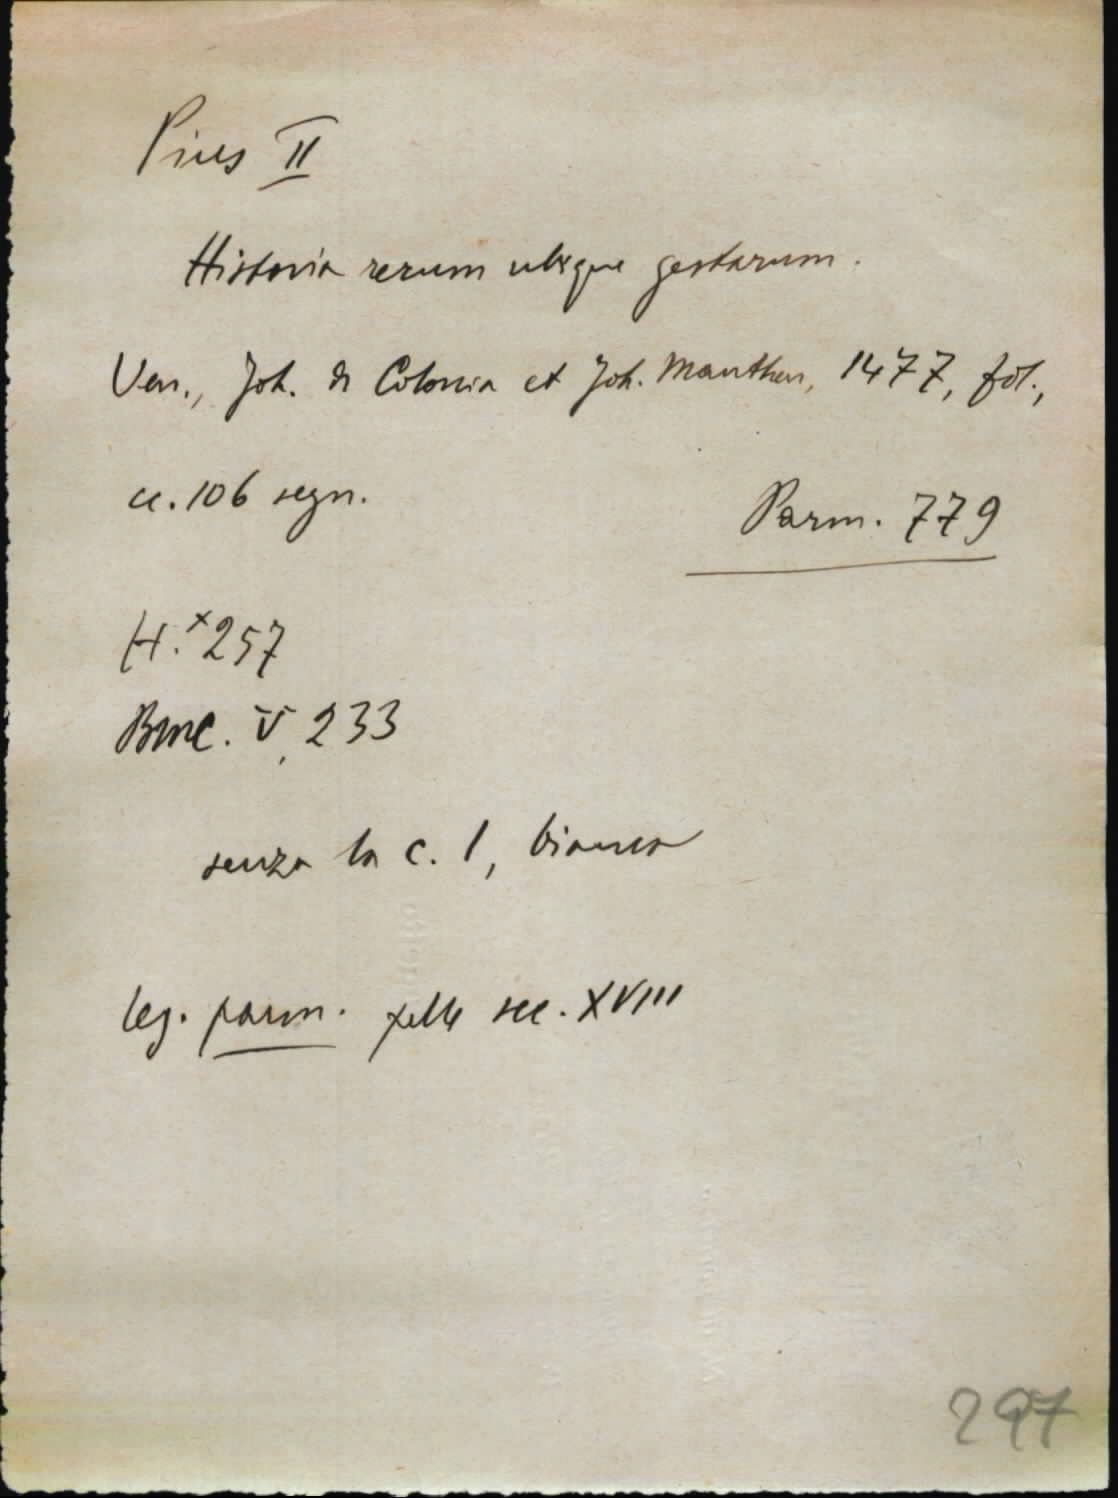 Pius II
Historia rerum ubique gestarum.
Ven., Joh. de Colonia et Joh. Manthen, 1477, fol.,
cc. 106 segn.
Parm. 779
H.ˣ 257
BMC. V, 233
senza la c. 1, bianca
leg. parm. pelle sec. XVIII
297